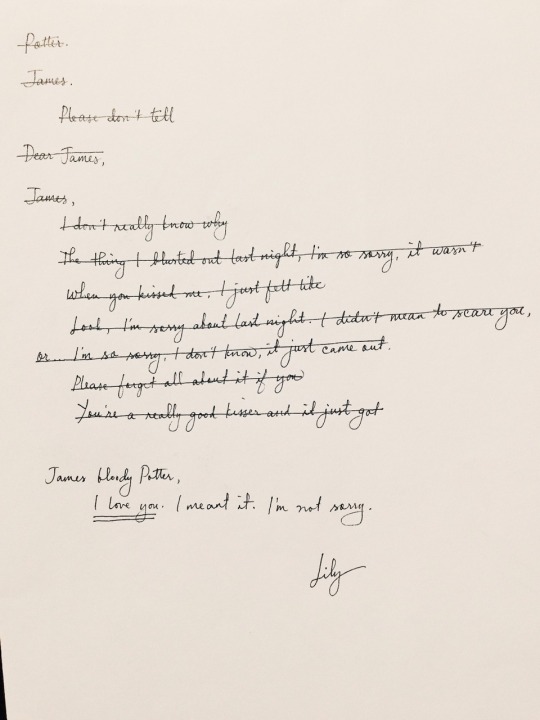 Potter.
James.
Please don't tell
Dear James,
James,
I don't really know why
The thing I blurted out last night, I'm so sorry, it wasn't
When you kissed me, I just felt like
Look, I'm sorry about last night. I didn't mean to scare you,
or... I'm so sorry. I don't know, it just came out.
Please forget all about it if you
You're a really good kisser and it just got
James bloody Potter,
I love you. I meant it. I'm not sorry.
Lily